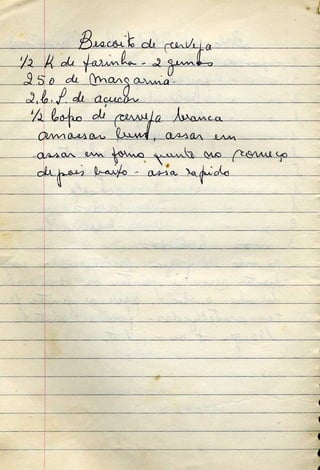 Biscoito de cerveja
1/2 K de farinha - 2 gemas
250 de Margarina
2.c.S. de açucar
1/2 Copo de cerveja branca
amassar bem, assar em
assar em forno quente no começo
depois baixo - assa rapido